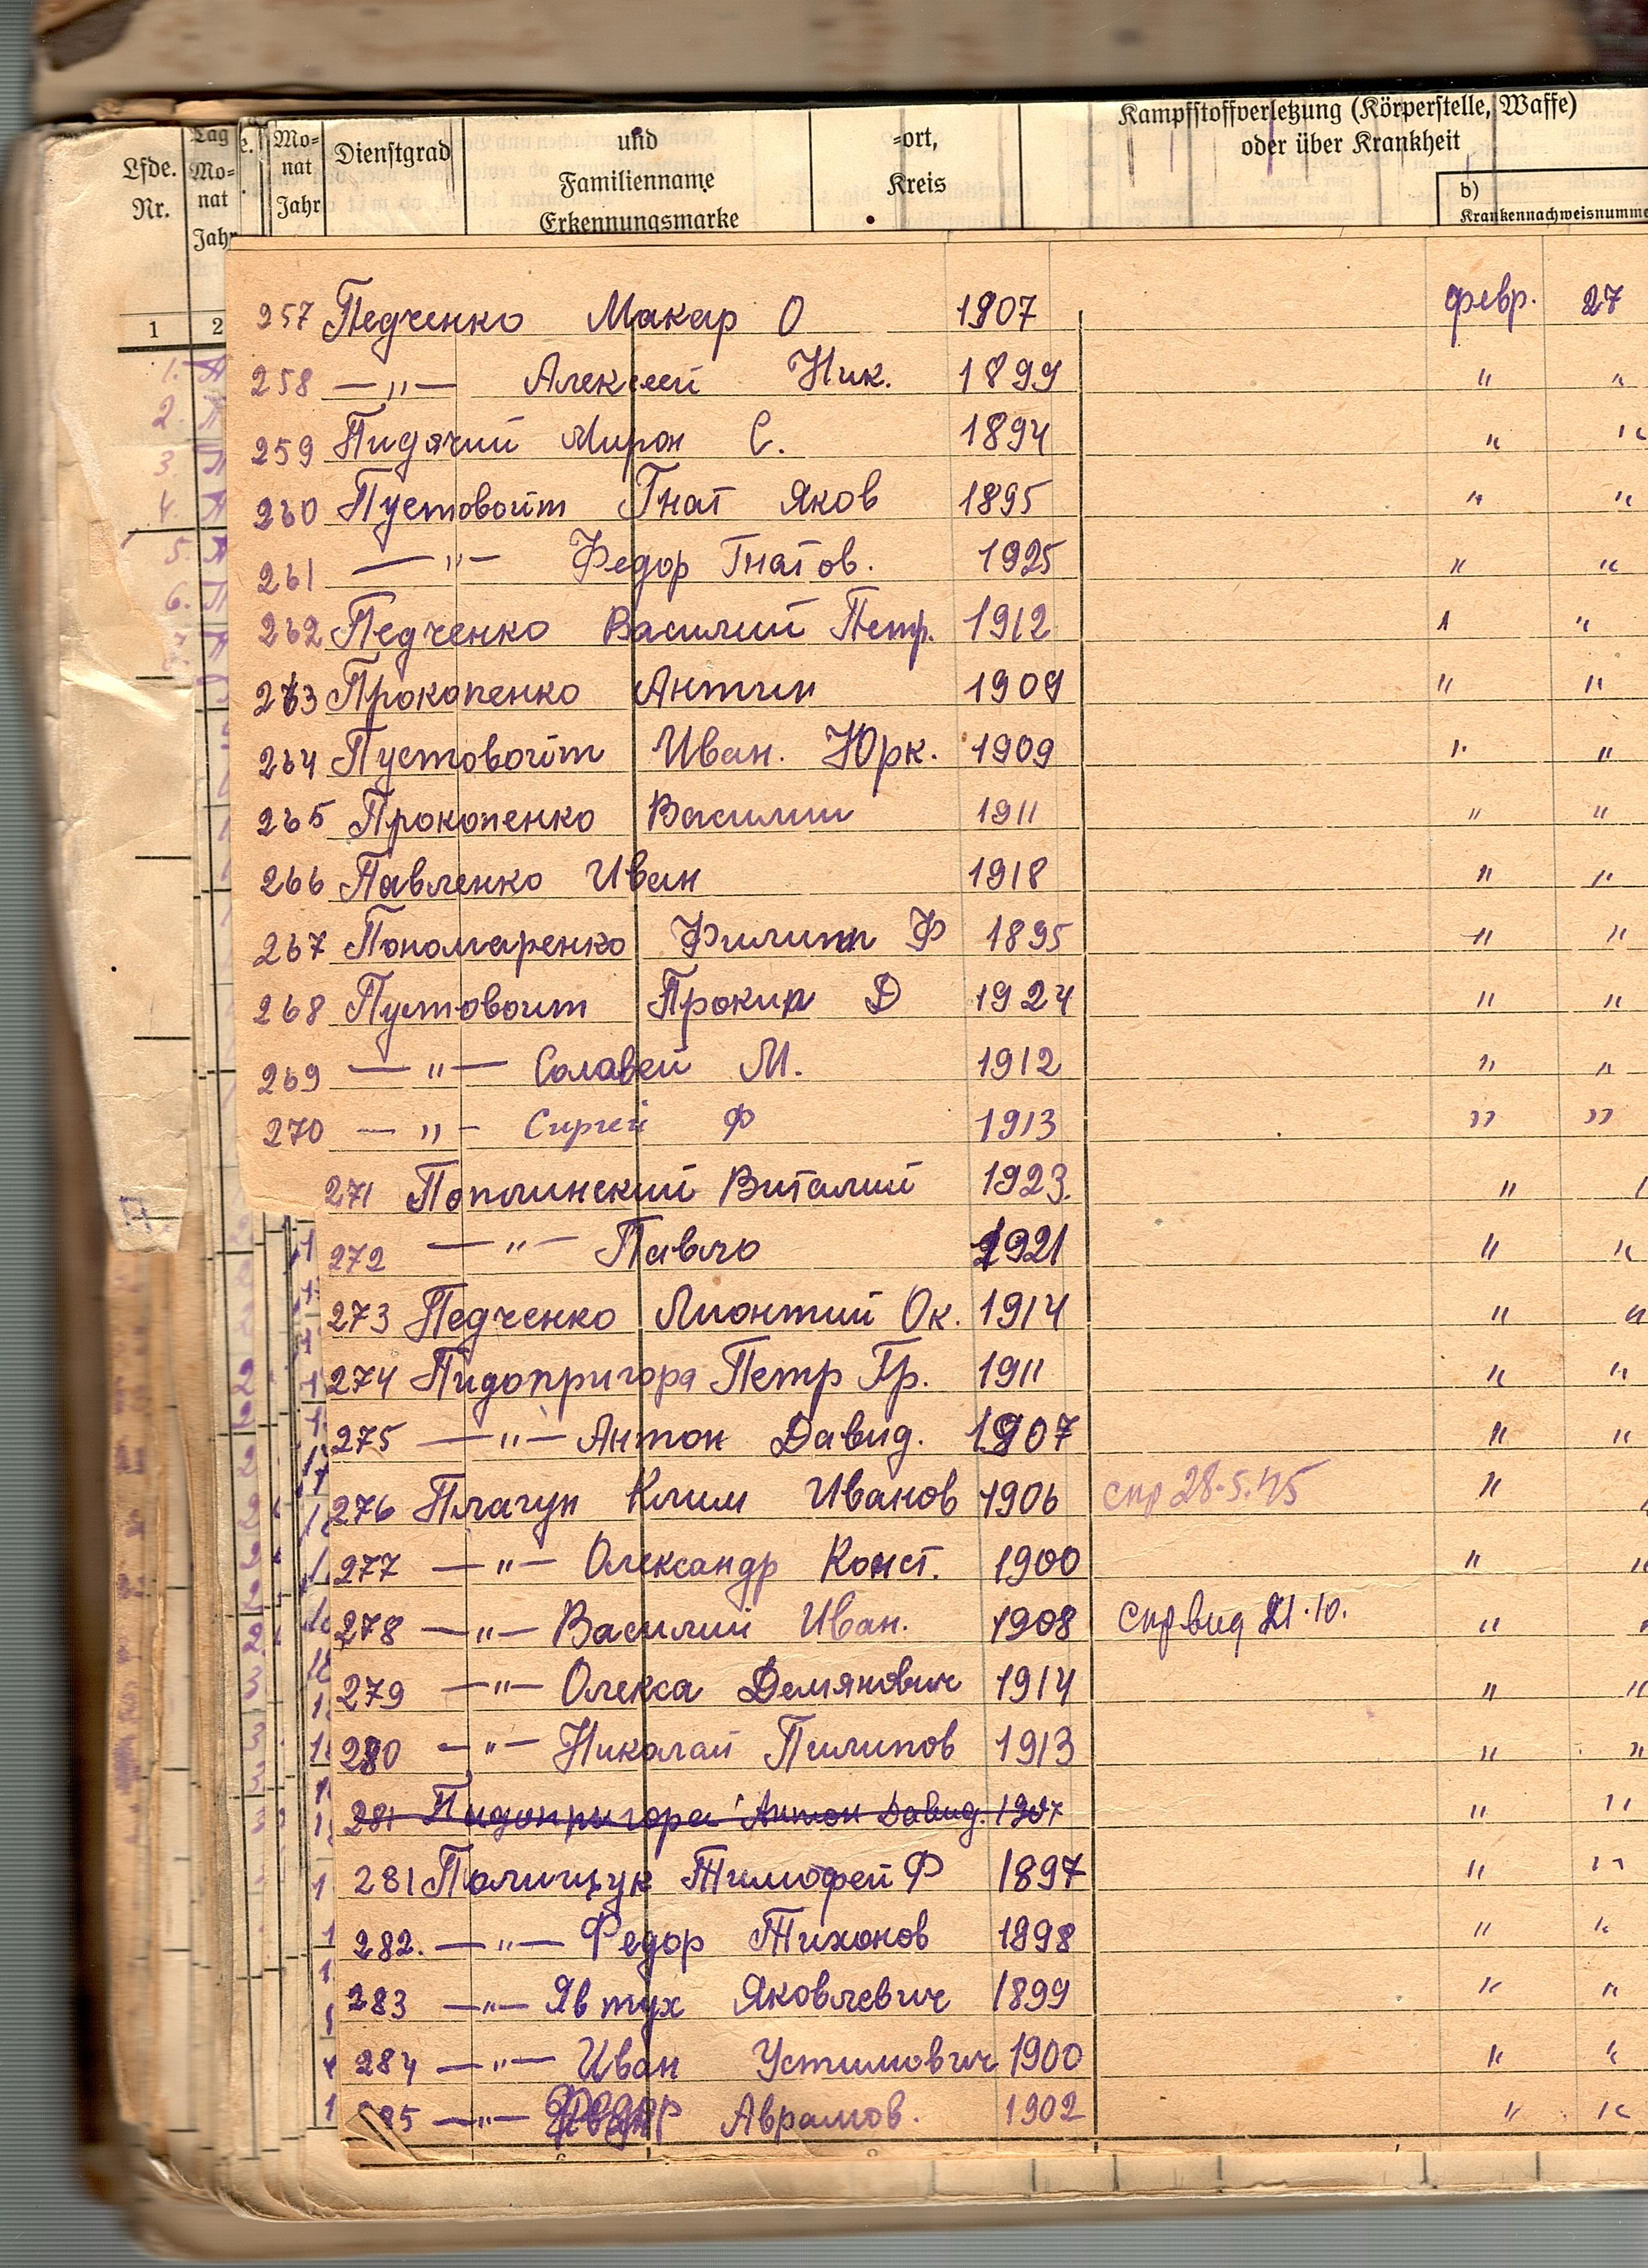 Kampfstoffverletzung (Körperstelle, Waffe)
oder über Krankheit
Lfde.
Nr.
Tag
Mo-
nat
Jahr
Mo-
nat
Jahr
Dienstgrad
und
Familienname
Erkennungsmarke
-ort,
Kreis
b)
Krankennachweisnumme
1 2
257 Педченко Макар О 1907 февр. 27
258 —〃— Алексей Ник. 1899 〃 〃
259 Пидячий Мирон С. 1894 〃 〃
260 Пустовойт Гнат Яков 1895 〃 〃
261 —〃— Федор Гнатов. 1925 〃 〃
262 Педченко Василий Петр. 1912 〃 〃
263 Прокопенко Антин 1909 〃 〃
264 Пустовойт Иван. Юрк. 1909 〃 〃
265 Прокопенко Василии 1911 〃 〃
266 Павленко Иван 1918 〃 〃
267 Пономаренко Филипп Ф 1895 〃 〃
268 Пустовоит Прокип Д 1924 〃 〃
269 —〃— Солавей М. 1912 〃 〃
270 —〃— Сиргей Ф 1913 〃 〃
271 Поплинский Виталий 1923. 〃
272 —〃— Павло 1921 〃 〃
273 Педченко Лионтий Ок. 1914 〃 〃
274 Пидопригора Петр Гр. 1911 〃 〃
275 —〃— Антон Давид. 1907 〃 〃
276 Плагун Клим Иванов 1906 спр 28.5.45 〃
277 —〃— Олександр Конст. 1900 〃 〃
278 —〃— Василий Иван. 1908 Спр вид 21.10. 〃
279 —〃— Олекса Демянович 1914 〃 〃
280 —〃— Николай Пилипов 1913 〃 〃
281 Пидопригора Антон Давид. 1907 〃 〃
281 Полищук Тимофей Ф 1897 〃 〃
282. —〃— Федор Тихонов 1898 〃 〃
283 —〃— Явтух Яковлевич 1899 〃 〃
284 —〃— Иван Устимович 1900 〃 〃
285 —〃— Федор Аврамов. 1902 〃 〃